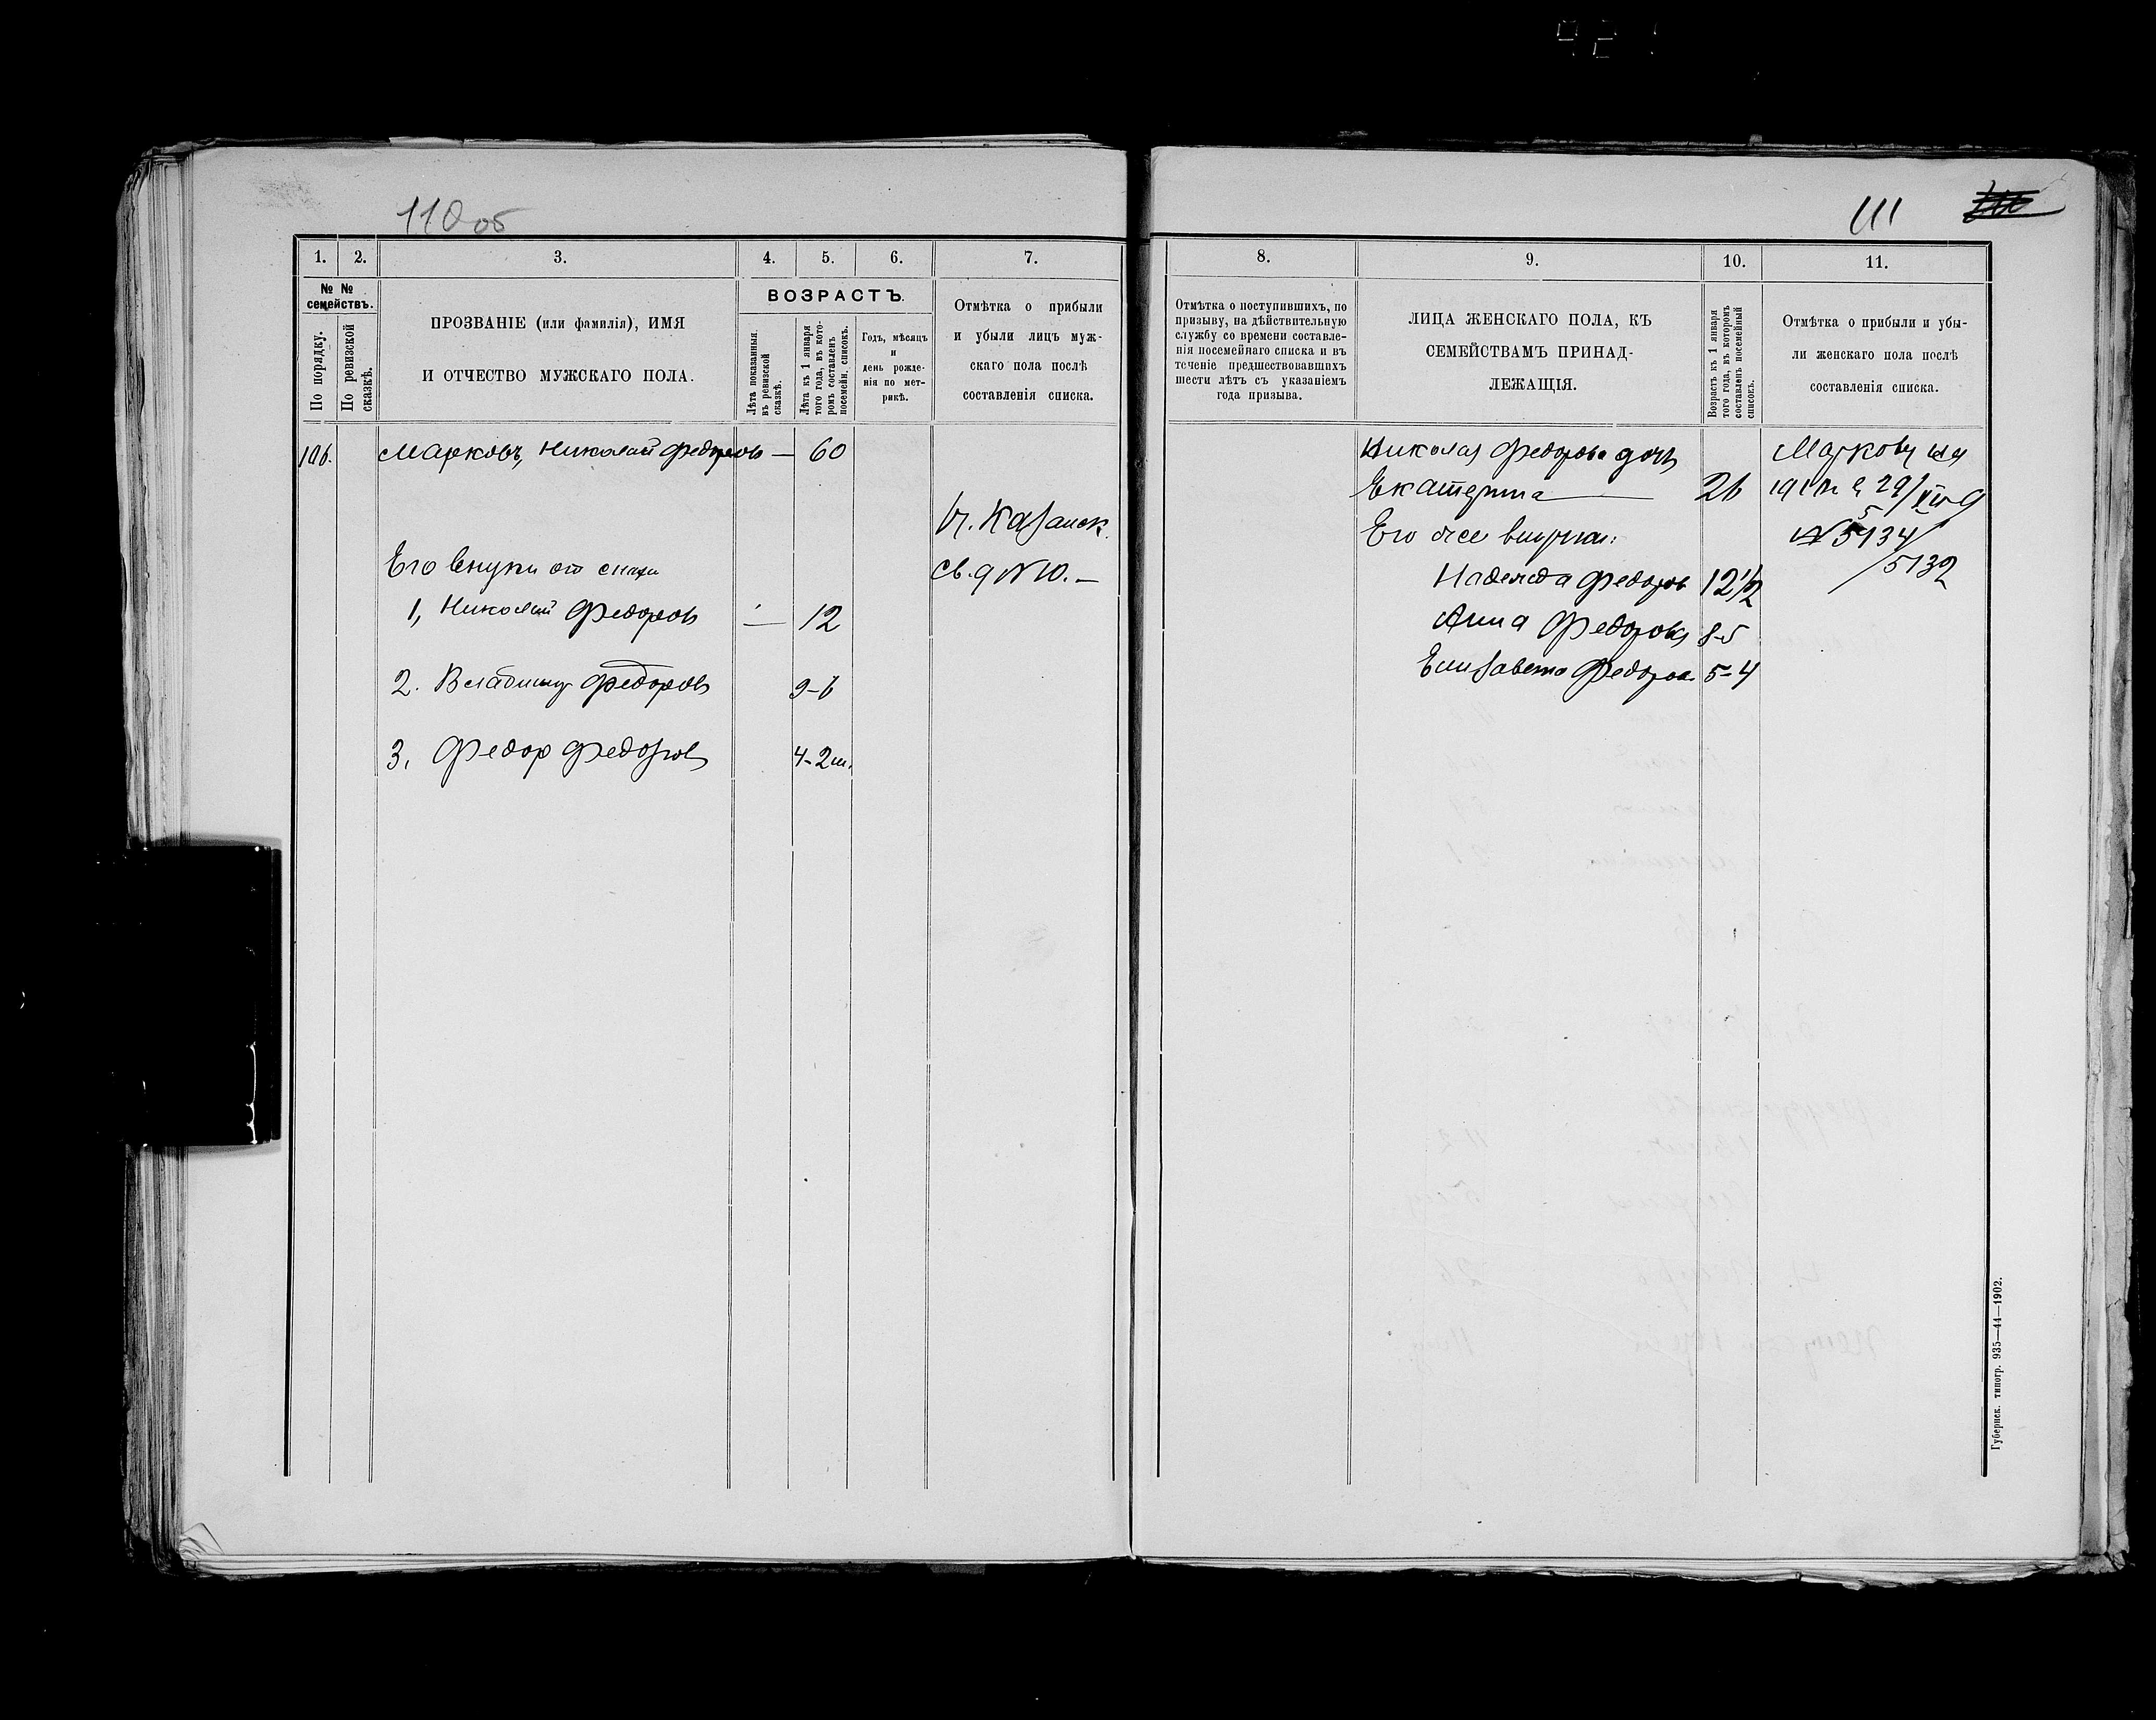 110 об
1. 2. 3. 4. 5. 6. 7.
№ №
семействъ.
По порядку.
По ревизской
сказкѣ.
ПРОЗВАНІЕ (или фамилія), ИМЯ
И ОТЧЕСТВО МУЖСКАГО ПОЛА.
ВОЗРАСТЪ.
Лѣта показанныя
въ ревизской
сказкѣ.
Лѣта къ 1 января
того года, въ кото-
ромъ составленъ
посемейн. списокъ.
Годъ, мѣсяцъ
и
день рожде-
нія по мет-
рикѣ.
Отмѣтка о прибыли
и убыли лицъ муж-
скаго пола послѣ
составленія списка.
106. Марковъ, Николай Федоров — 60
Казанск.
Его внуки от
св. 9 № 10. —
1, Николай Федоров — 12
2. Владимир Федоров 9-6
3, Федор Федоров 4-2 м.
111
8. 9. 10. 11.
Отмѣтка о поступившихъ, по
призыву, на дѣйствительную
службу со времени составле-
нія посемейнаго списка и въ
теченіе предшествовавшихъ
шести лѣтъ съ указаніемъ
года призыва.
ЛИЦА ЖЕНСКАГО ПОЛА, КЪ
СЕМЕЙСТВАМЪ ПРИНАД-
ЛЕЖАЩІЯ.
Возрастъ къ 1 января
того года, въ которомъ
составленъ посемейный
списокъ.
Отмѣтка о прибыли и убы-
ли женскаго пола послѣ
составленія списка.
Николая Федорова дочь
Маркову на
Екатерина — 26
29/VII
Его же внучки:
№ 5134/
Надежда Федоров 12 1/2
/5132
Анна Федорова 8-5
Елизавета Федоров. 5-4
Губернск. типогр. 935—44—1902.